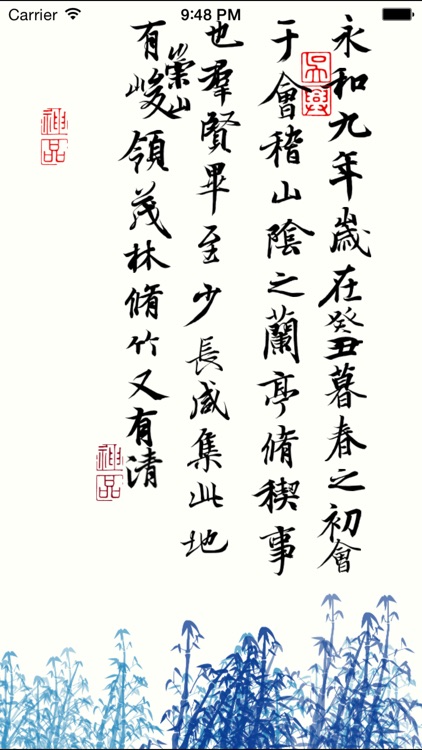 Carrier 9:48 PM
永和九年歲在癸丑暮春之初會
于會稽山陰之蘭亭脩稧事
也羣賢畢至少長咸集此地
有崇山峻領茂林脩竹又有清
神品
神品